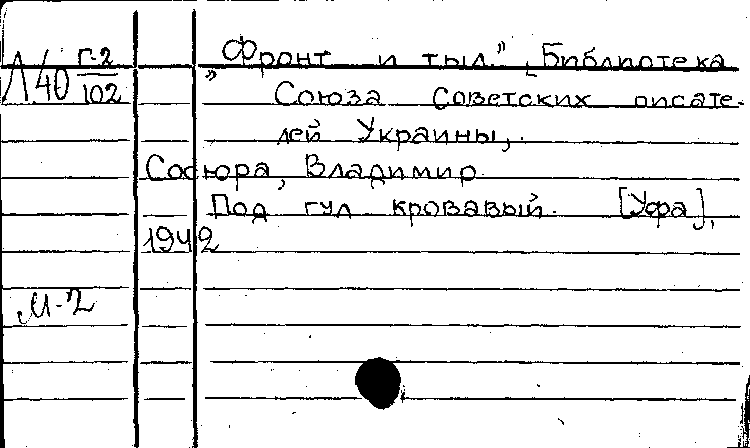 Л40 Г-2/102
"Фронт и тыл", [Библиотека
Союза Советских писате-
лей Украины,.
Сосюра, Владимир
Под гул кровавый. [Уфа],
1942
М-2